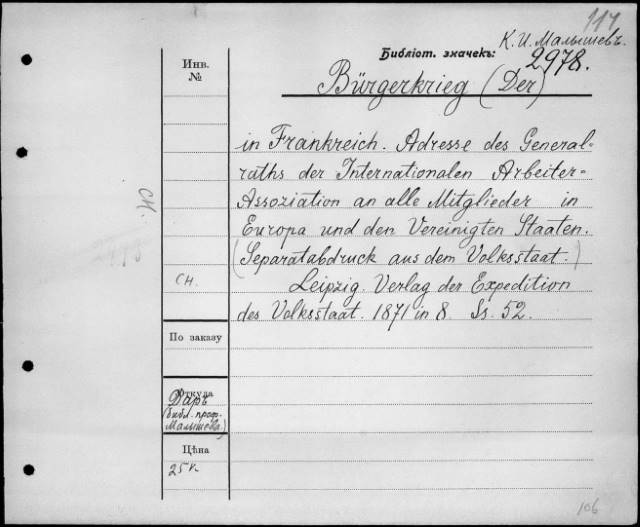 117
К. И. Малышевъ.
Библіот. значекъ: 2978.
Инв.
№
Bürgerkrieg (Der)
in Frankreich. Adresse des General-
raths der Internationalen Arbeiter-
Assoziation an alle Mitglieder in
Europa und den Vereinigten Staaten.
(Separatabdruck aus dem Volksstaat.)
Leipzig. Verlag der Expedition
des Volksstaat. 1871 in 8. Ss. 52.
СН.
СН.
По заказу
Откуда
Даръ
(библ. проф.
Малышева)
Цѣна
25 к
106